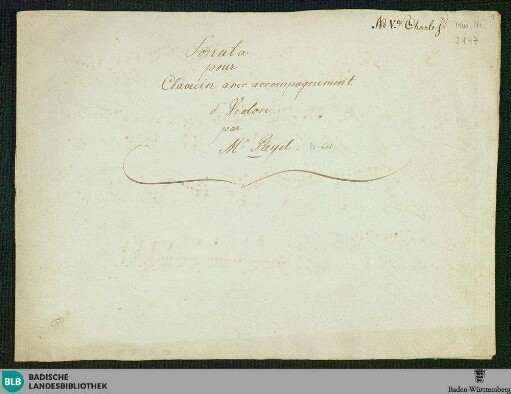 M V.ve Charles
Mus. Hs.
2147
Sonata
pour
Clavecin avec accompagnement
d'Violon
par
Mr. Pleyel.
BLB BADISCHE
LANDESBIBLIOTHEK
Baden-Württemberg